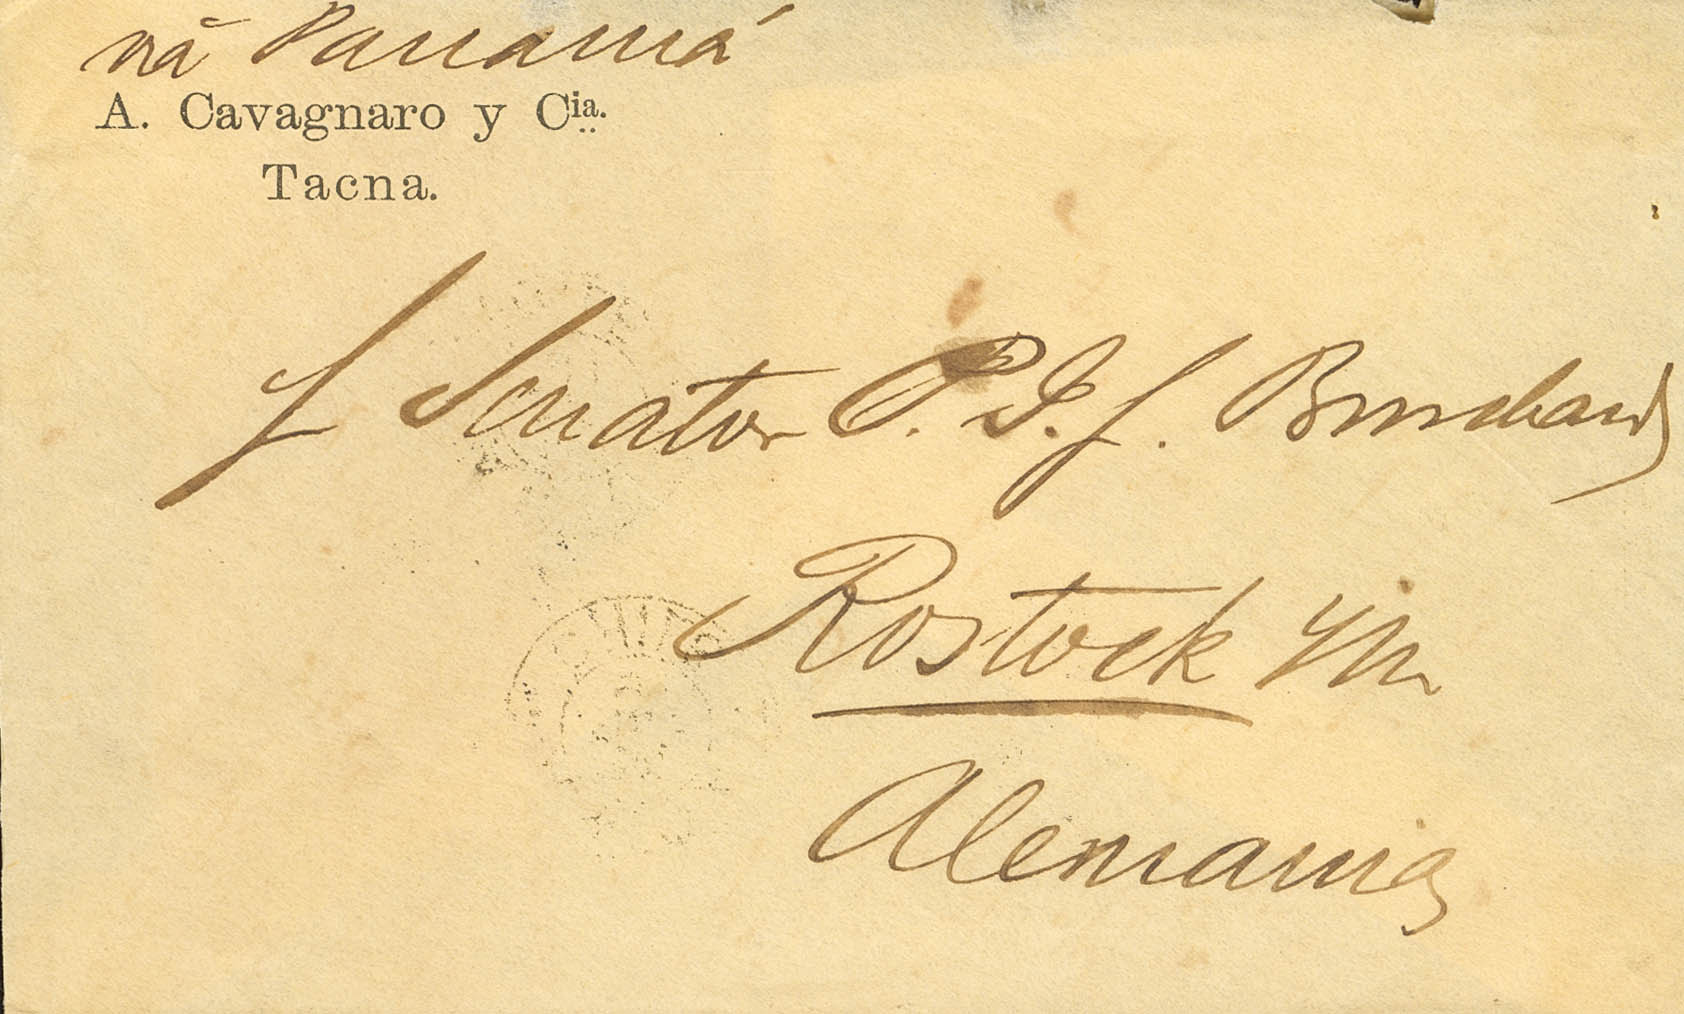 viâ Panamá
A. Cavagnaro y Cia.
Tacna.
Senator P. J. f. Burchard
Rostock M
Alemania